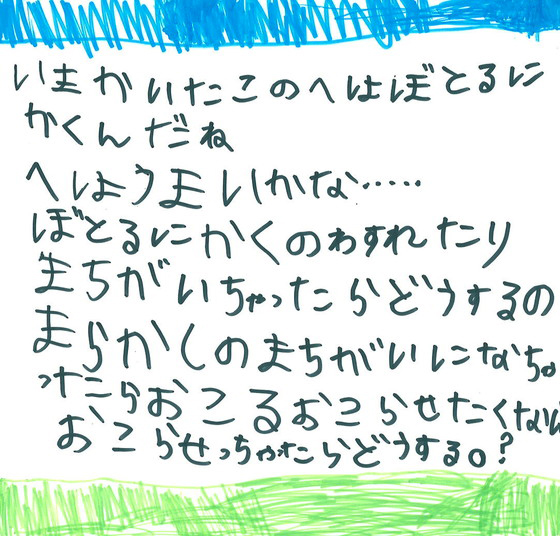 いまかいたこのへはぼとるに
かくんだね
へしようまいかな……
ぼとるにかくのわすれたり
まちがいちゃったらどうするの
まらかしのまちがいになちゃ
ったらおこるおこらせたくない
おこらせっちゃたらどうする。?